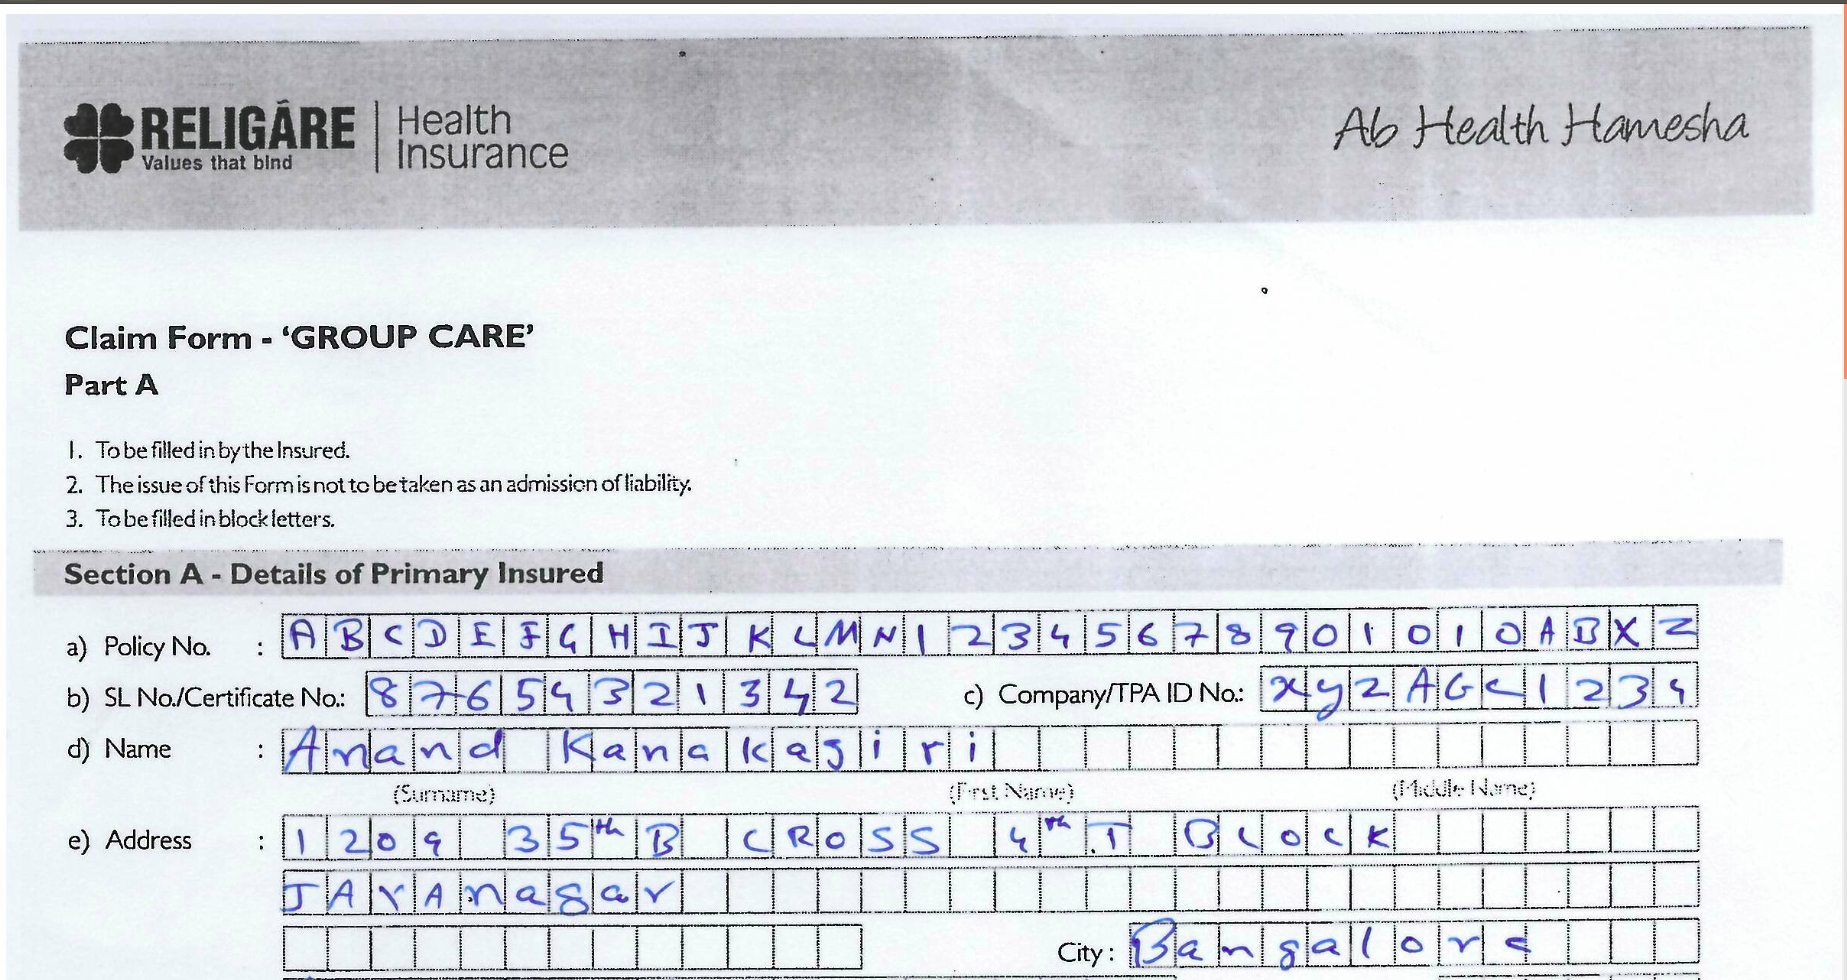 RELIGARE Health Insurance
Values that bind
Ab Health Hamesha
Claim Form - ‘GROUP CARE’
Part A
1. To be filled in by the Insured.
2. The issue of this Form is not to be taken as an admission of liability.
3. To be filled in block letters.
Section A - Details of Primary Insured
a) Policy No. : ABCDEFGHIJKLMN123456789010 10ABXZ
b) SL No./Certificate No.: 87654321342 c) Company/TPA ID No.: XYZAGC1234
d) Name : Anand Kanakagiri
(Surname) (First Name) (Middle Name)
e) Address : 1209 35th B CROSS 4th T BLOCK
JAYAnagar
City : Bangalore